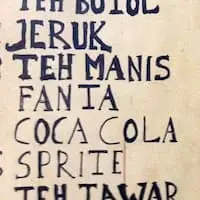 TEH BOTOL
JERUK
TEH MANIS
FANTA
COCA COLA
SPRITE
TEH TAWAR